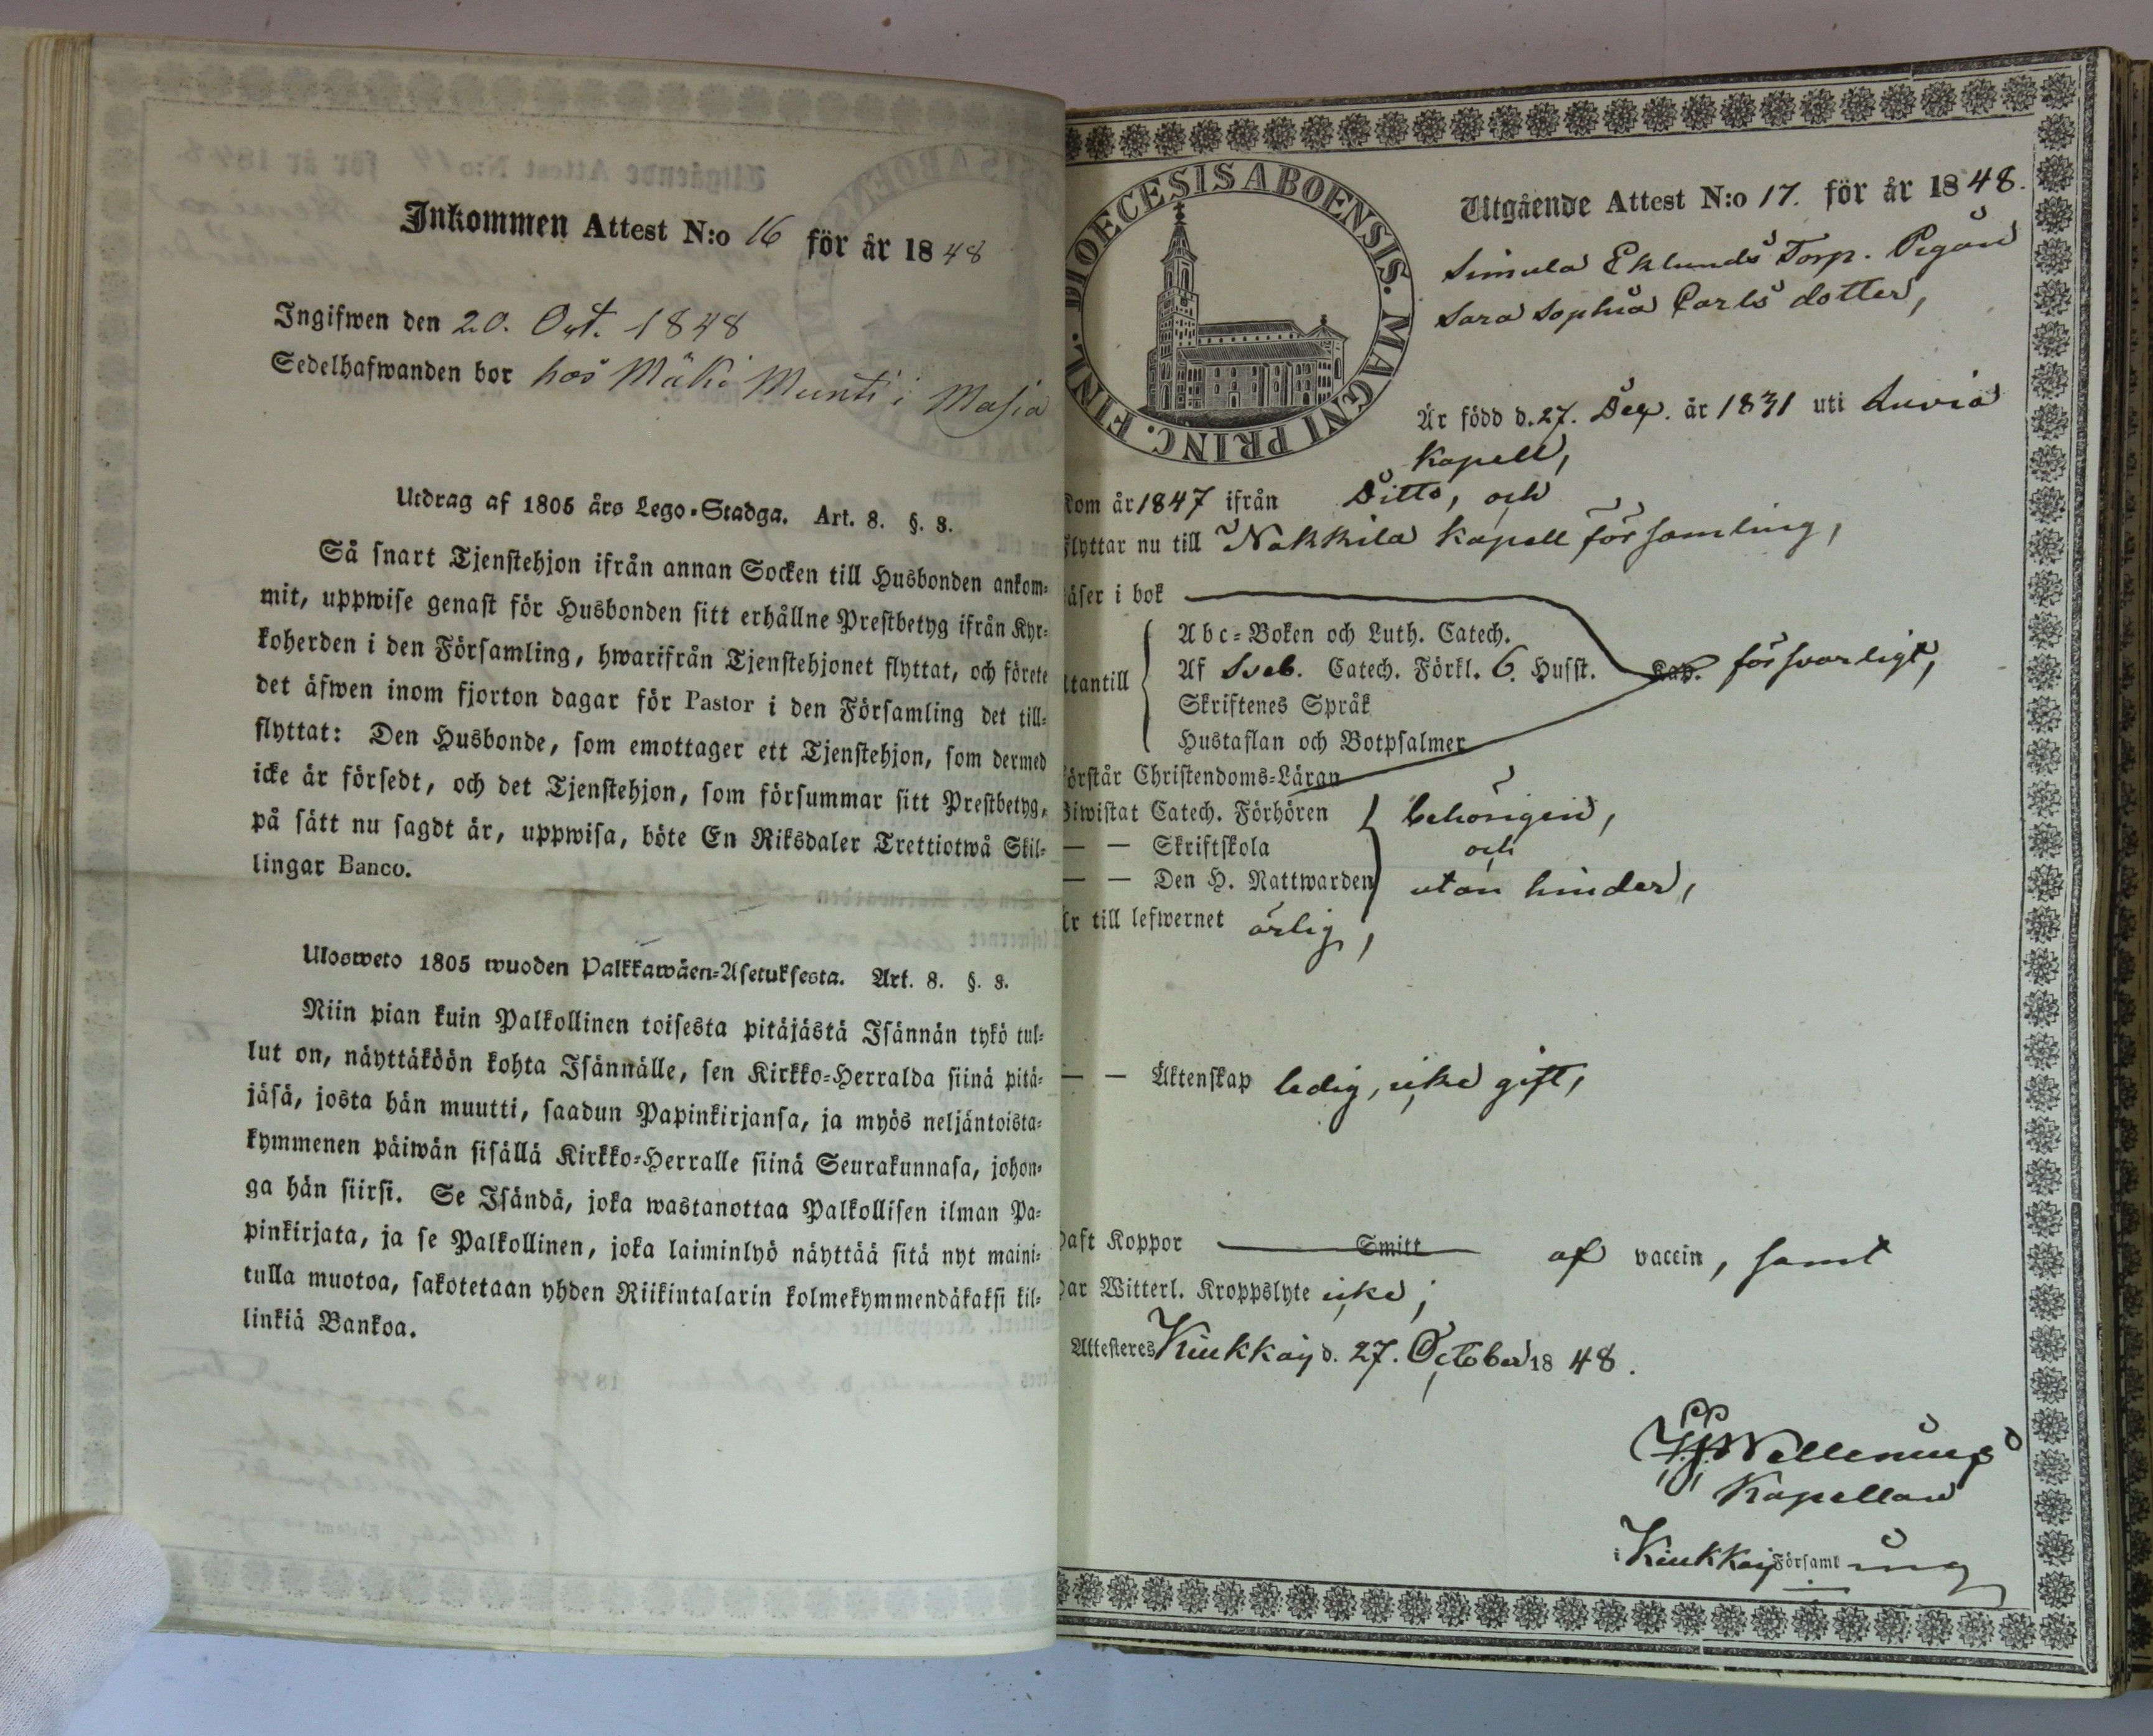 Inkommen Attest N:o 16 för år 1848
Ingifwen den 20. Oct. 1848
Sedelhafwanden bor hos Mäki Munti i Masia
Utdrag af 1805 års Lego-Stadga. Art. 8. §. 8.
Så snart Tjenstehjon ifrån annan Socken till Husbonden ankom-
mit, uppwise genast för Husbonden sitt erhållne Prestbetyg ifrån Kyr-
koherden i den Församling, hwarifrån Tjenstehjonet flyttat, och förete
det äfwen inom fjorton dagar för Pastor i den Församling det till-
flyttat: Den Husbonde, som emottager ett Tjenstehjon, som dermed
icke är försedt, och det Tjenstehjon, som försummar sitt Prestbetyg,
på sätt nu sagdt är, uppwisa, böte En Riksdaler Trettiotwå Skil-
lingar Banco.
Ulosweto 1805 wuoden Palkkawäen-Asetuksesta. Art. 8. §. 8.
Niin pian kuin Palkollinen toisesta pitäjästä Isännän tykö tul-
lut on, näyttäköön kohta Isännälle, sen Kirkko-Herralda siinä pitä-
jäsä, josta hän muutti, saadun Papinkirjansa, ja myös neljäntoista-
kymmenen päiwän sisällä Kirkko-Herralle siinä Seurakunnasa, johon-
ga hän siirsi. Se Isändä, joka wastanottaa Palkollisen ilman Pa-
pinkirjata, ja se Palkollinen, joka laiminlyö näyttää sitä nyt maini-
tulla muotoa, sakotetaan yhden Riikintalarin kolmekymmendäkaksi kil-
linkiä Bankoa.
DIOECESIS ABOENSIS. MAGNI PRINC. FINL.
Utgående Attest N:o 17. för år 1848.
Simula Eklunds Torp. Pigan
Sara Sophia Carls dotter,
Är född d. 27. Dec. år 1831 uti Luvia
Kapell,
Kom år 1847 ifrån Ditto, och
flyttar nu till Nakkila Kapell församling,
äser i bok
Abc-Boken och Luth. Catech.
Af Sveb. Catech. Förkl. 6. Husst. Kap. försvarligt,
tantill
Skriftenes Språk
Hustaflan och Botpsalmer
örstår Christendoms-Läran
Biwistat Catech. Förhören behörigen,
— — Skriftskola och
— — Den H. Nattwarden utan hinder,
Är till lefwernet ärlig,
— — Äktenskap ledig, icke gift,
Haft Koppor Smitt af vaccin, samt
Har Witterl. Kroppslyte icke;
Attesteres Kiukkais d. 27. October 1848.
Kapellan
i Kiukkais Församling